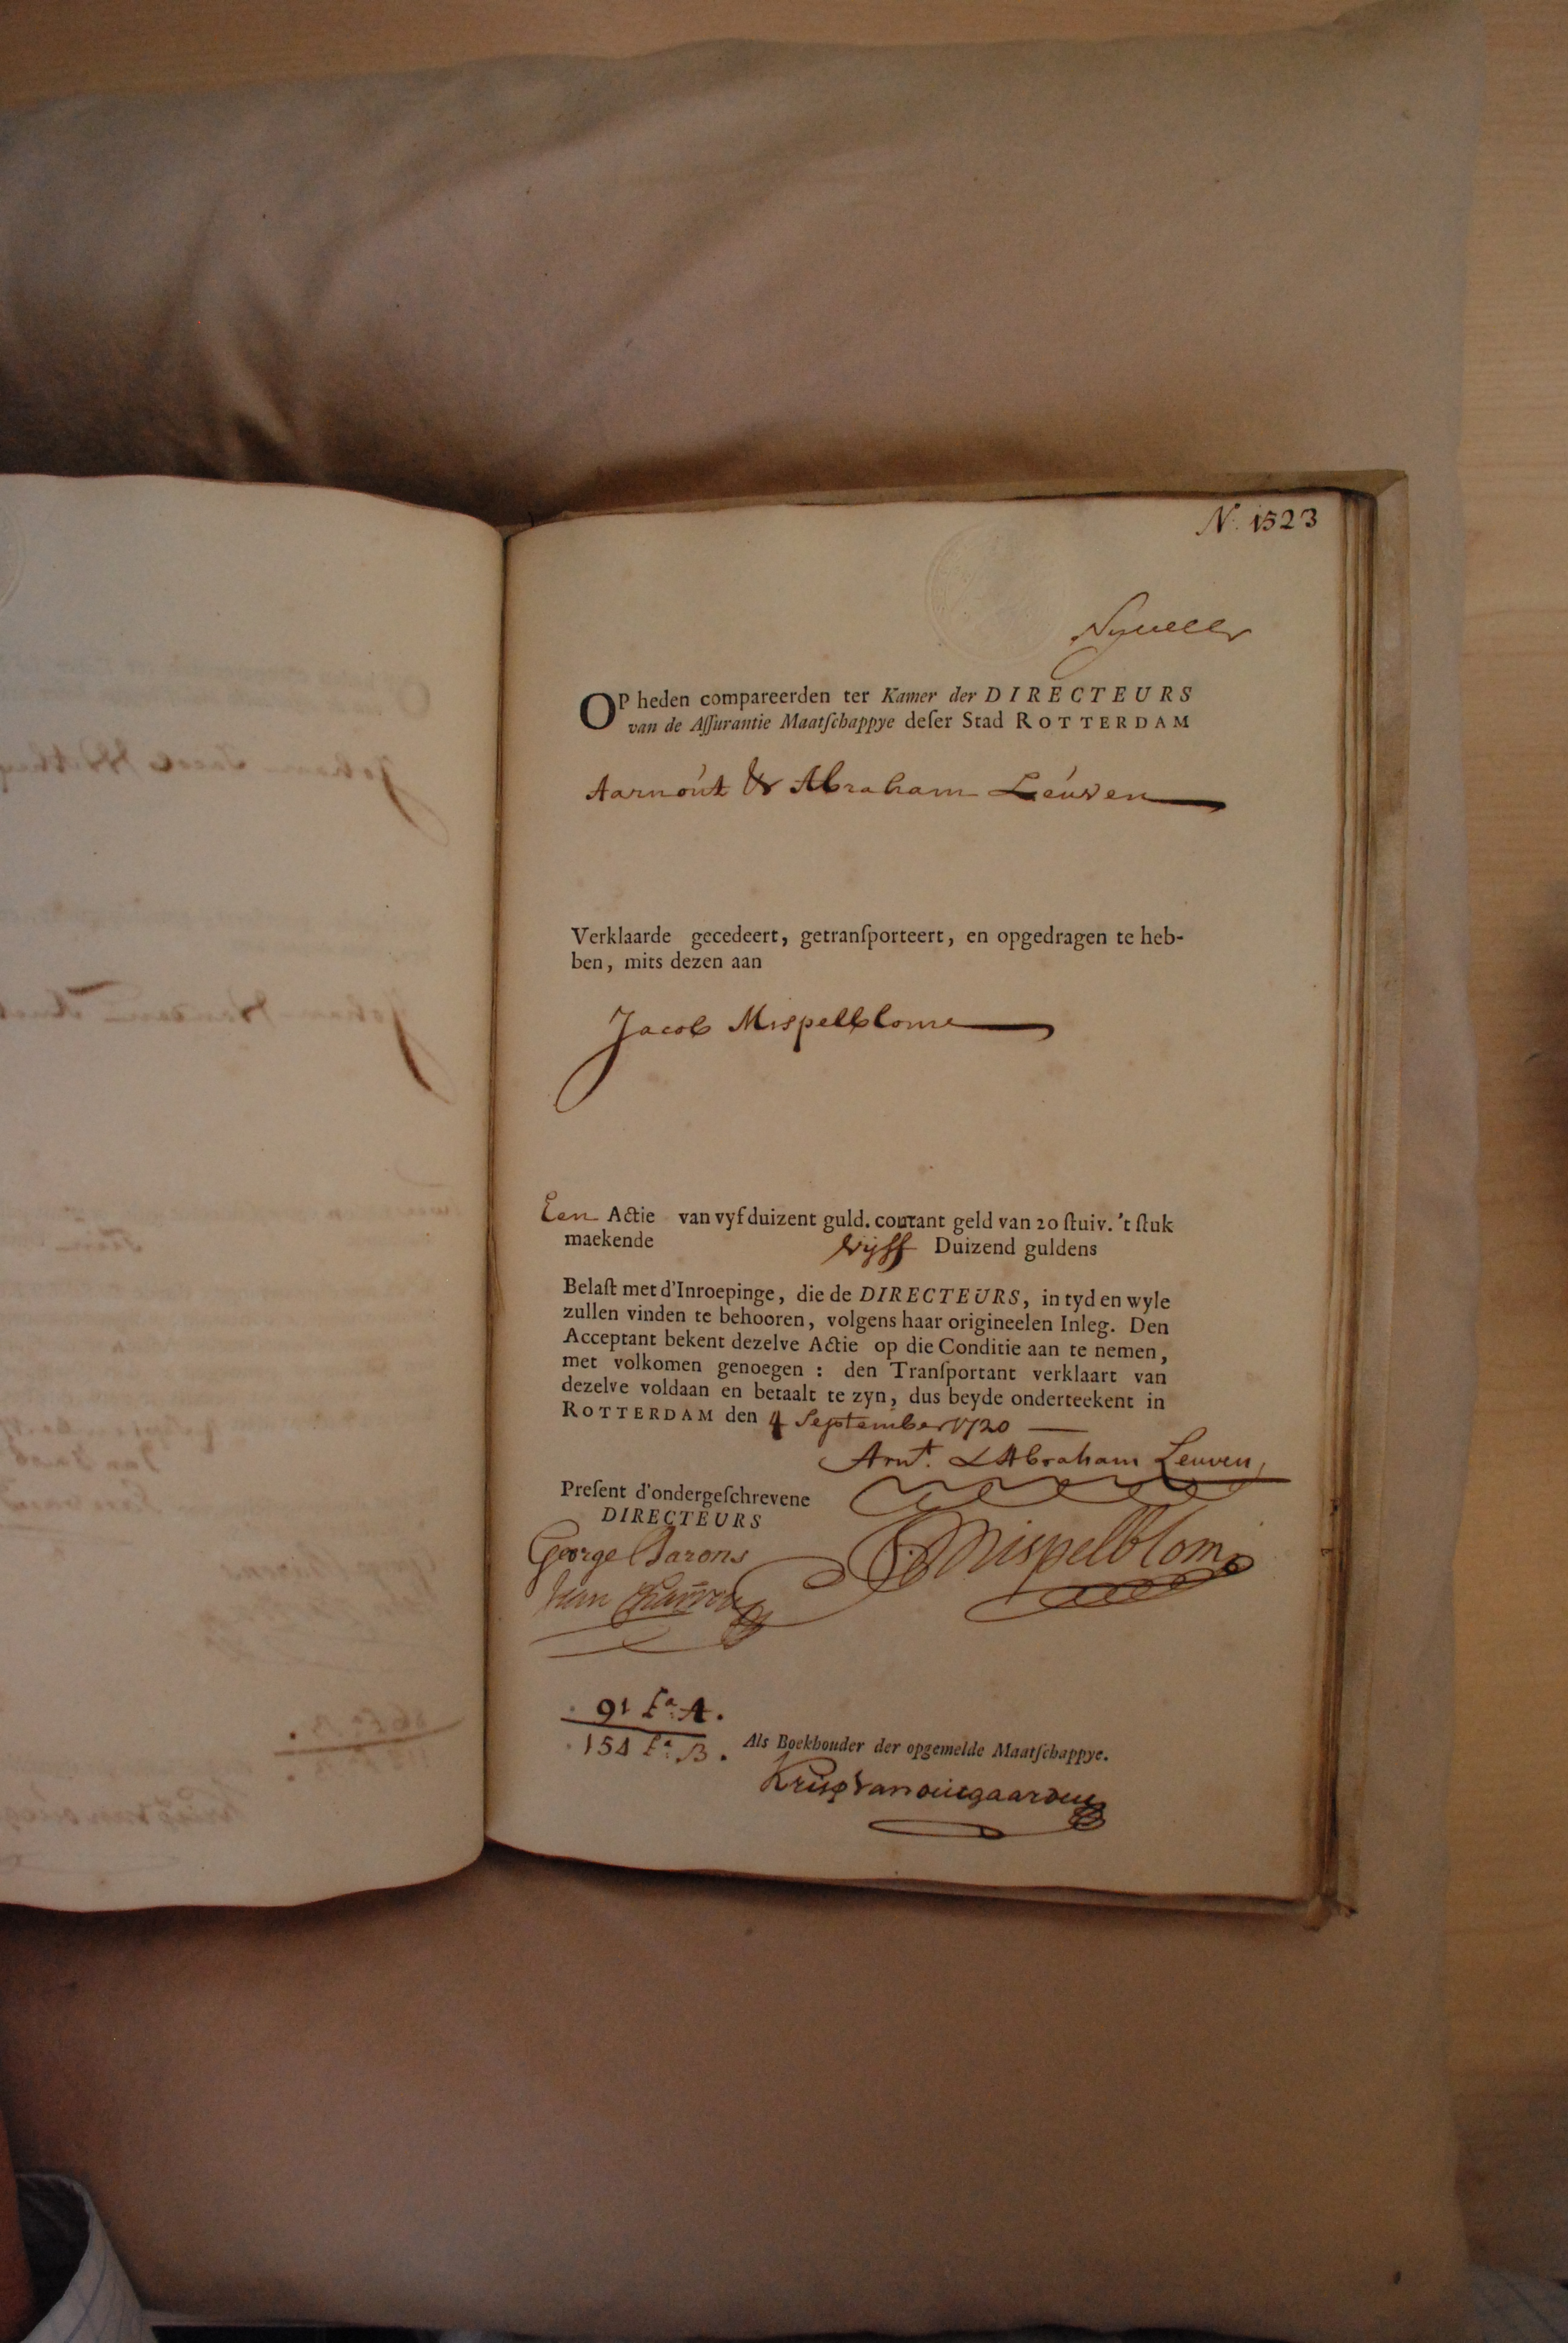 N. 1523
OP heden compareerden ter Kamer der DIRECTEURS
van de Aſſurantie Maatſchappye deſer Stad ROTTERDAM
Aarnout & Abraham Leuven
Verklaarde gecedeert, getranſporteert, en opgedragen te heb-
ben, mits dezen aan
Jacob Mispelblome
Een Actie van vyfduizent guld. courant geld van 20 ſtuiv. 't ſtuk
maekende Vyff Duizend guldens
Belaſt met d'Inroepinge, die de DIRECTEURS, in tyd en wyle
zullen vinden te behooren, volgens haar origineelen Inleg. Den
Acceptant bekent dezelve Actie op die Conditie aan te nemen,
met volkomen genoegen : den Tranſportant verklaart van
dezelve voldaan en betaalt te zyn, dus beyde onderteekent in
ROTTERDAM den 4 September 1720
Arnt. & Abraham Leuven
Preſent d'ondergeſchrevene
DIRECTEURS
George Barons
J: Mispelblom
91 fo. A.
154 fo. B.
Als Boekhouder der opgemelde Maatſchappye.